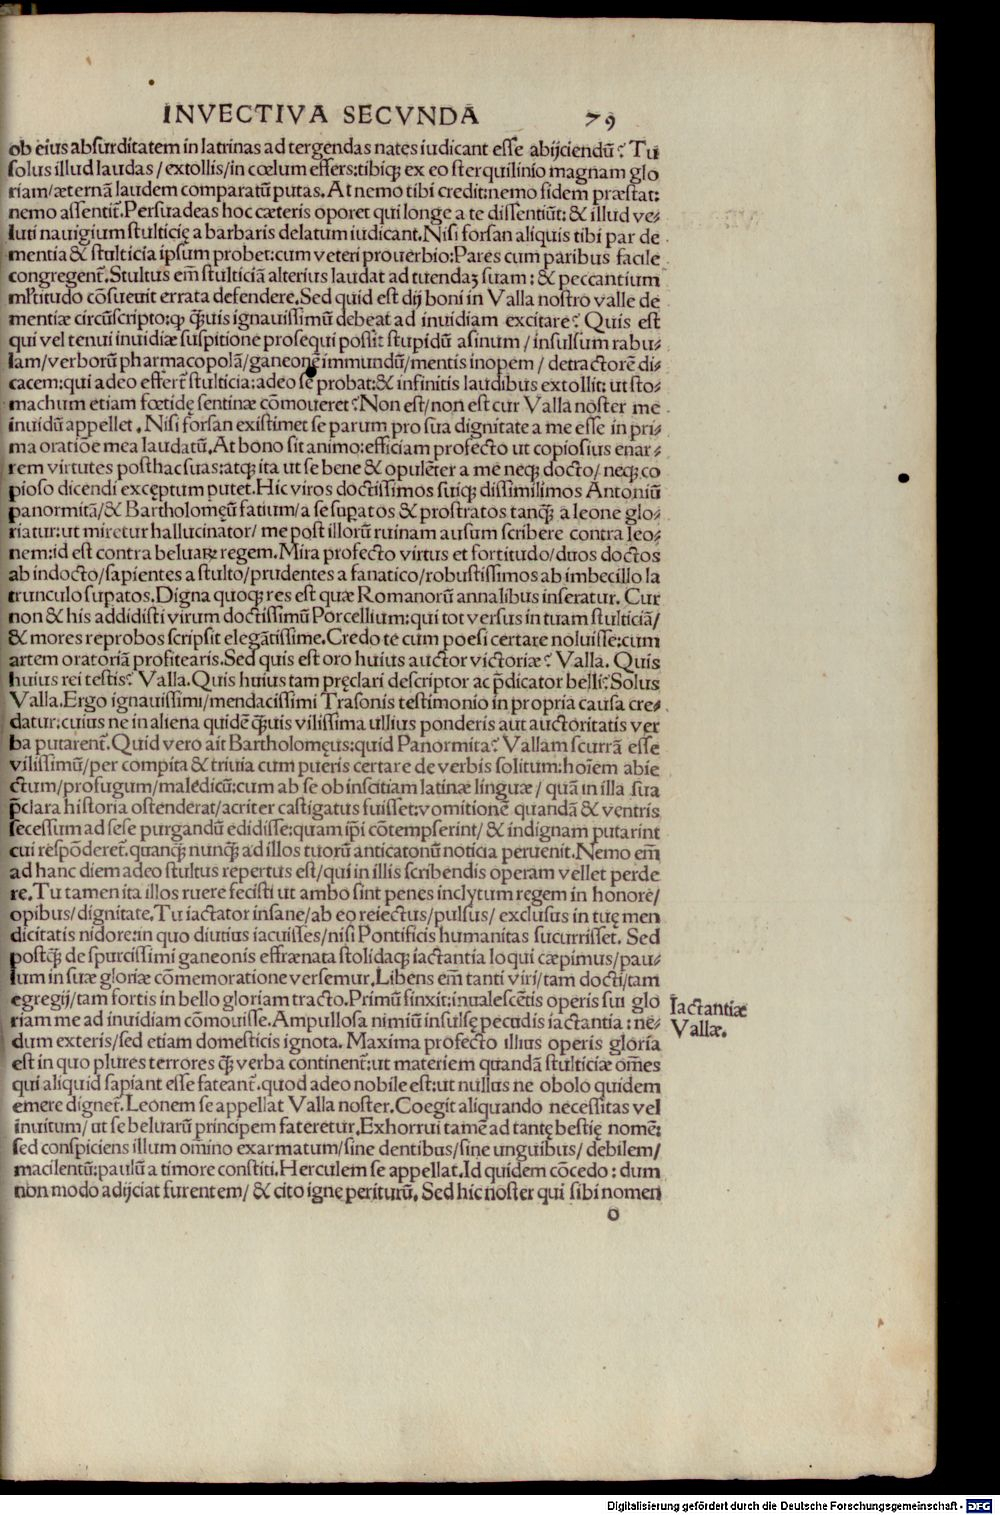 INVECTIVA SECVNDA 79
ob eius absurditatem in latrinas ad tergendas nates iudicant esse abijciendū? Tu
solus illud laudas/extollis/in cœlum effers:tibiq; ex eo sterquilinio magnam glo
riam/æternā laudem comparatū putas. At nemo tibi credit:nemo fidem præstat:
nemo assentit̃. Persuadeas hoc cæteris oporet qui longe a te dissentiūt: & illud ve-
luti nauigium stulticię a barbaris delatum iudicant. Nisi forsan aliquis tibi par de
mentia & stulticia ipsum probet:cum veteri prouerbio:Pares cum paribus facile
congregent̃. Stultus em̃ stulticiā alterius laudat ad tuendaȝ suam: & peccantium
mĺtitudo cōsueuit errata defendere. Sed quid est dij boni in Valla nostro valle de
mentiæ circūscripto:ꝙ q̃uis ignauissimū debeat ad inuidiam excitare? Quis est
qui vel tenui inuidiæ suspitione prosequi possit stupidū asinum/insulsum rabu-
lam/verborū pharmacopolā/ganeonē immundū/mentis inopem/detractorē di-
cacem:qui adeo effert̃ stulticia:adeo se probat:& infinitis laudibus extollit: ut sto-
machum etiam fœtidę sentinæ cōmoueret? Non est/non est cur Valla noster me
inuidū appellet. Nisi forsan existimet se parum pro sua dignitate a me esse in pri-
ma oratiōe mea laudatū. At bono sit animo:efficiam profecto ut copiosius enar-
rem virtutes posthac suas:atq; ita ut se bene & opulēter a me neq; docto/neq; co
pioso dicendi exceptum putet. Hic viros doctissimos suiq; dissimilimos Antoniū
panormitā/& Bartholomęū fatium/a se sup̱atos & prostratos tanq̃ a leone glo-
riatur:ut miretur hallucinator/me post illorū ruinam ausum scribere contra leo-
nem:id est contra beluaꝝ regem. Mira profecto virtus et fortitudo/duos doctos
ab indocto/sapientes a stulto/prudentes a fanatico/robustissimos ab imbecillo la
trunculo sup̱atos. Digna quoq; res est quæ Romanorū annalibus inseratur. Cur
non & his addidisti virum doctissimū Porcellium:qui tot versus in tuam stulticiā/
& mores reprobos scripsit elegātissime. Credo te cum poesi certare noluisse:cum
artem oratoriā profitearis. Sed quis est oro huius auctor victoriæ? Valla. Quis
huius rei testis? Valla. Quis huius tam pręclari descriptor ac p̃dicator belli? Solus
Valla. Ergo ignauissimi/mendacissimi Trasonis testimonio in propria causa cre-
datur:cuius ne in aliena quidē q̃uis vilissima ullius ponderis aut auctoritatis ver
ba putarent̃. Quid vero ait Bartholomęus:quid Panormita? Vallam scurrā esse
vilissimū/per compita & triuia cum pueris certare de verbis solitum:hoīem abie
ctum/profugum/maledicū:cum ab se ob inscitiam latinæ linguæ/quā in illa sua
p̃clara historia ostenderat/acriter castigatus fuisset:vomitionē quandā & ventris
secessum ad sese purgandū edidisse:quam ip̄i cōtempserint/& indignam putarint
cui respōderet̃. quanq̃ nunq̃ ad illos tuorū anticatonū noticia peruenit. Nemo em̃
ad hanc diem adeo stultus repertus est/qui in illis scribendis operam vellet perde
re. Tu tamen ita illos ruere fecisti ut ambo sint penes inclytum regem in honore/
opibus/dignitate. Tu iactator insane/ab eo reiectus/pulsus/exclusus in tuę men
dicitatis nidore:in quo diutius iacuisses/nisi Pontificis humanitas sucurrisset. Sed
postq̃ de spurcissimi ganeonis effrænata stolidaq; iactantia loqui cæpimus/pau-
lum in suæ gloriæ cōmemoratione versemur. Libens em̃ tanti viri/tam docti/tam
egregij/tam fortis in bello gloriam tracto. Primū finxit:inualescētis operis sui glo
riam me ad inuidiam cōmouisse. Ampullosa nimiū insulsę pecudis iactantia: ne-
dum exteris/sed etiam domesticis ignota. Maxima profecto illius operis gloria
est in quo plures terrores q̃ verba continent̃:ut materiem quandā stulticiæ oḿes
qui aliquid sapiant esse fateant̃. quod adeo nobile est:ut nullus ne obolo quidem
emere dignet̃. Leonem se appellat Valla noster. Coegit aliquando necessitas vel
inuitum/ut se beluarū principem fateretur. Exhorrui tamē ad tantę bestię nomē:
sed conspiciens illum om̄ino exarmatum/sine dentibus/sine unguibus/debilem/
macilentū:paulū a timore constiti. Herculem se appellat. Id quidem cōcedo: dum
non modo adijciat furentem/& cito igne periturū. Sed hic noster qui sibi nomen
o
Iactantiæ
Vallæ.
Digitalisierung gefördert durch die Deutsche Forschungsgemeinschaft - DFG